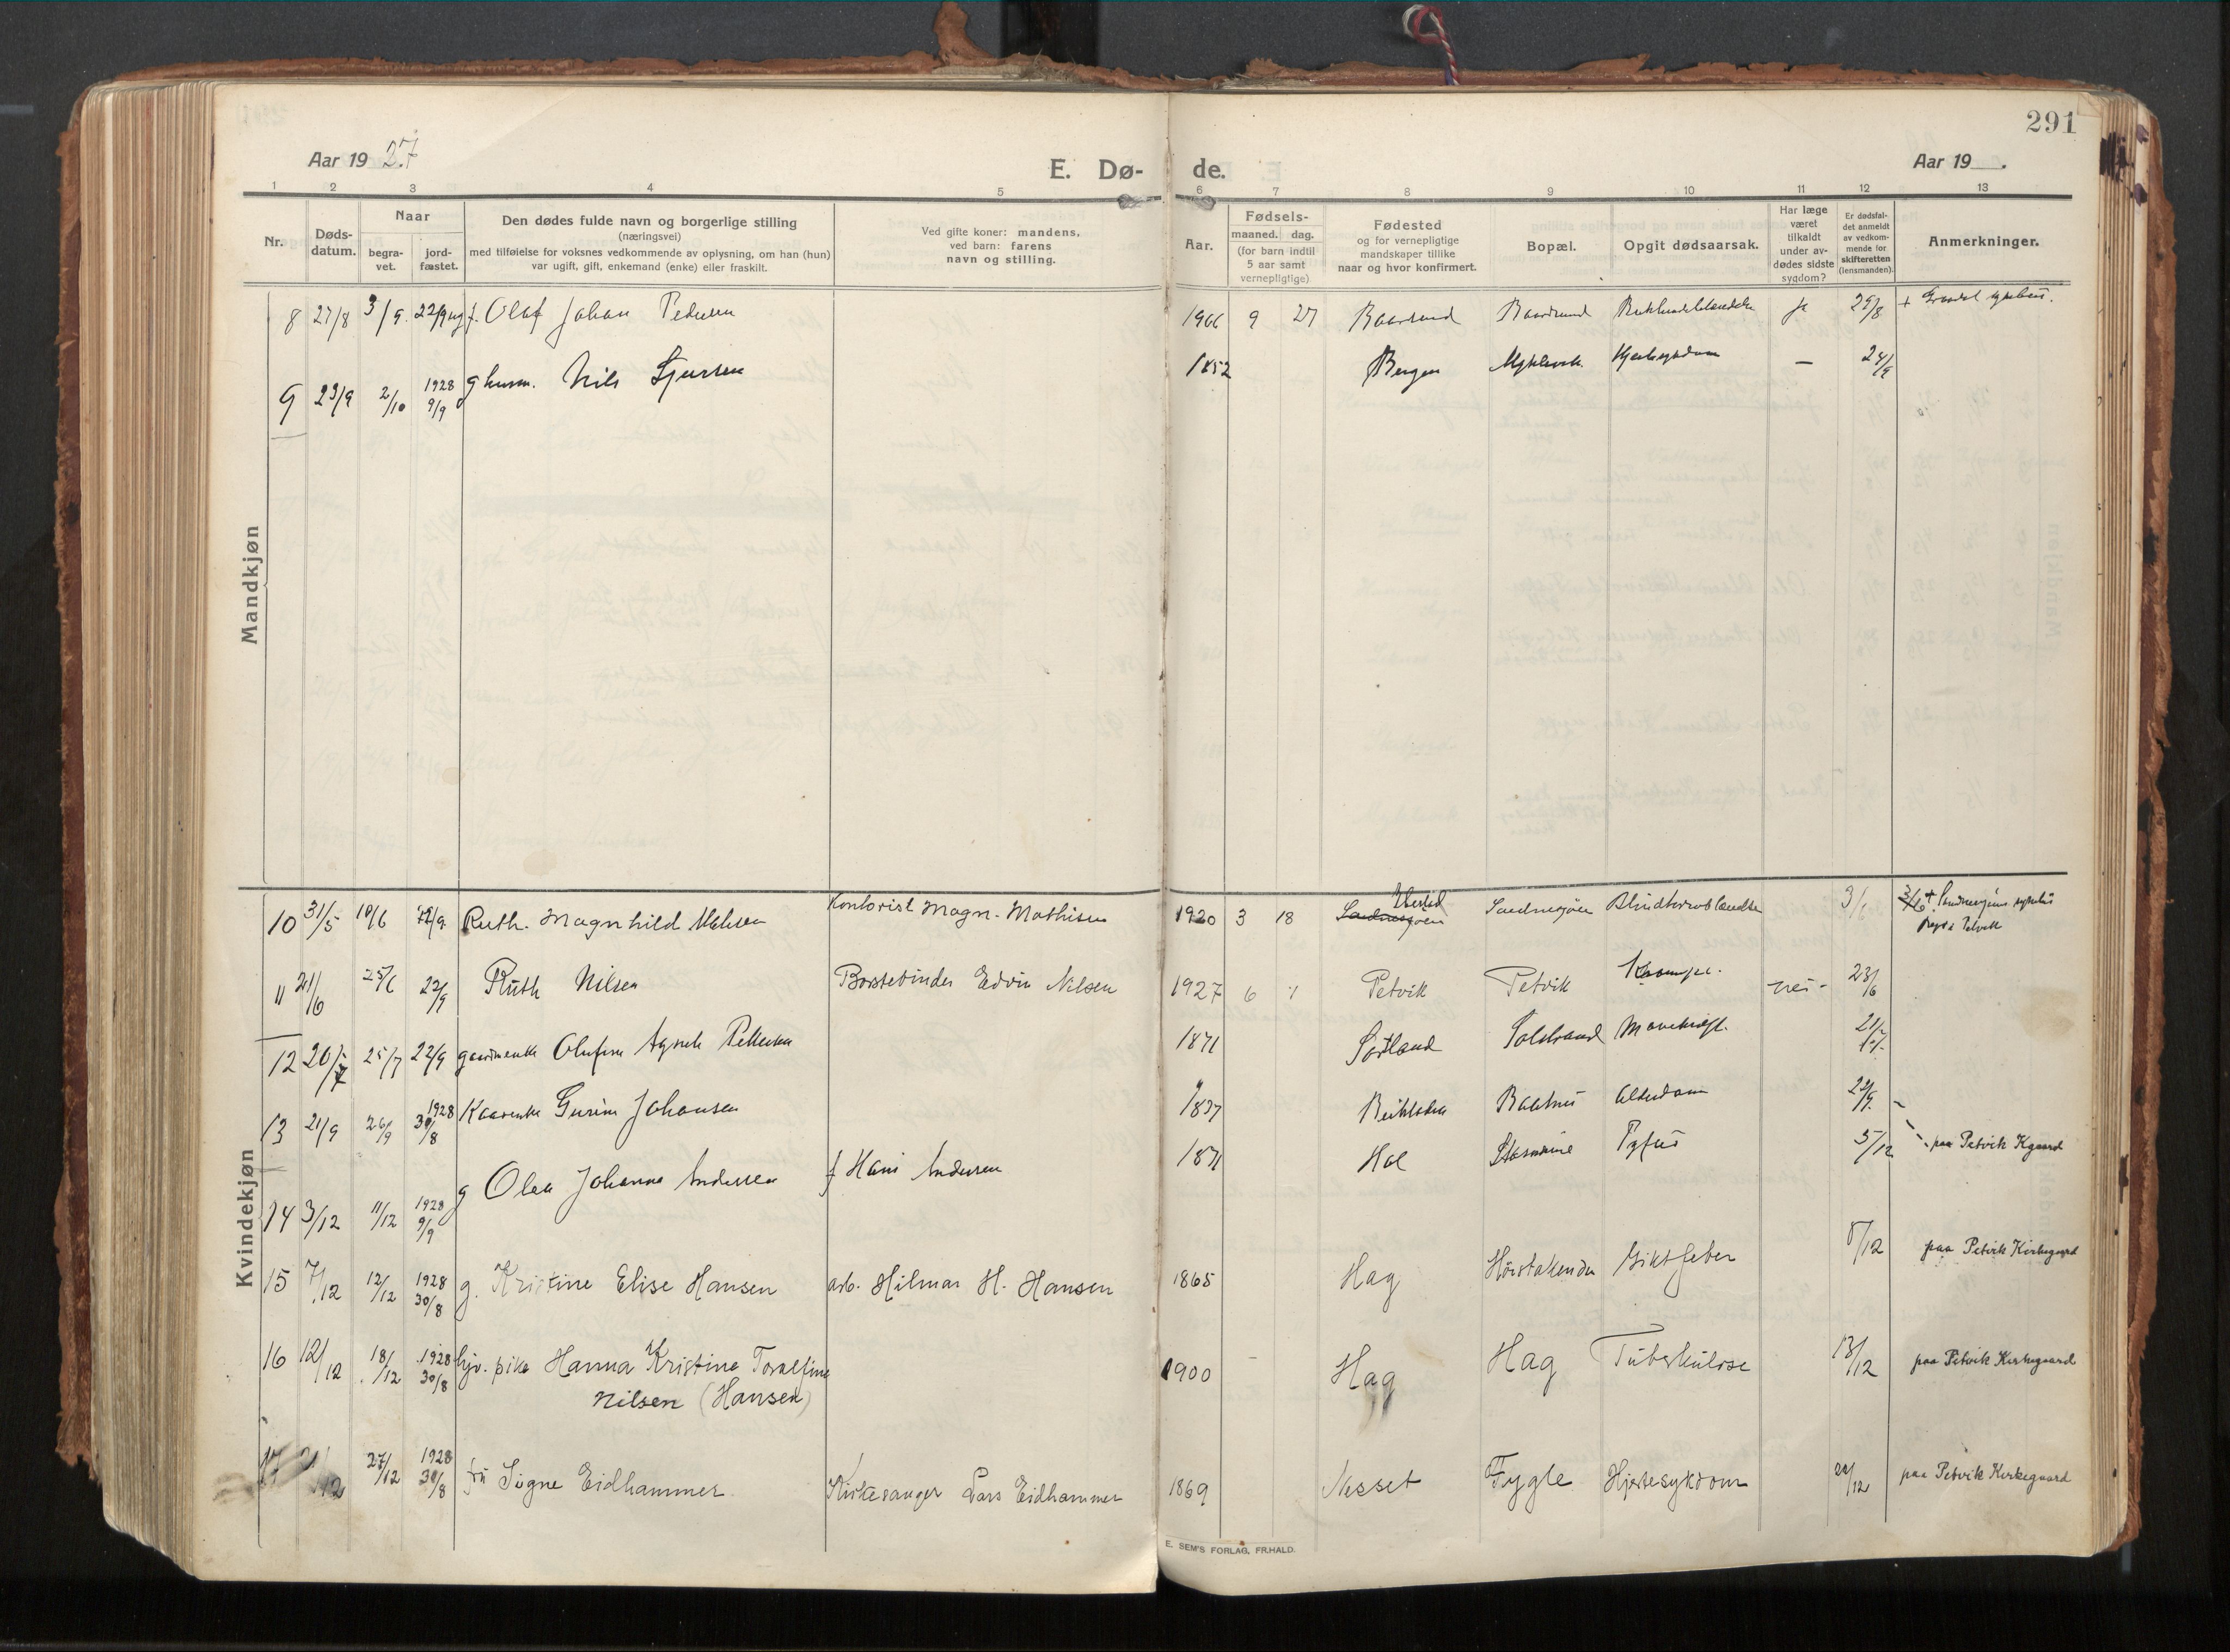 291
Aar 1927
E. Dø-
de.
Aar 19 .
1 2 3 4 5 6 7 8 9 10 11 12 13
Nr.
Døds-
datum.
Naar
begra-
vet.
jord-
fæstet.
Den dødes fulde navn og borgerlige stilling
(næringsvei)
med tilføielse for voksnes vedkommende av oplysning, om han (hun)
var ugift, gift, enkemand (enke) eller fraskilt.
Ved gifte koner: mandens,
ved barn: farens
navn og stilling.
Aar.
Fødsels-
maaned. dag.
(for barn indtil
5 aar samt
vernepligtige)
Fødested
og for vernepligtige
mandskaper tillike
naar og hvor konfirmert.
Bopæl.
Opgit dødsaarsak.
Har læge
været
tilkaldt
under av-
dødes sidste
sygdom?
Er dødsfal-
det anmeldt
av vedkom-
mende for
skifteretten
(lensmanden).
Anmerkninger.
Mandkjøn
8 27/8 3/9 22/9 ug f. Olaf Johan Pedersen 1906 9 27 ja 29/8
9 23/9 2/10 1928 9/9 g Nils Sjursen 1852 Bergen — 24/9
Kvindekjøn
10 31/5 10/6 22/9 Ruth Magnhild Kontorist Magn. Mathisen 1920 3 18
11 21/6 25/6 22/9 Ruth Nilsen Børstebinder Edvin Nilsen 1927 6 Petvik Petvik nei - 23/6
12 20/7 25/7 22/9 Agnete Pettersen 1871 Sortland
13 21/9 26/9 1928 30/8 Johansen 1837 Alderdom 22/9
14 3/12 11/12 1928 9/9 g Olea Johanna Andersen f Hans Andersen 1871 Hol Tyfus 5/12 paa Petvik Kgaard
15 7/12 12/12 1928 30/8 g. Kristine Elise Hansen arb. Hilmar H. Hansen 1865 Hag Giktfeber 8/12 paa Petvik Kirkegaard
16 12/12 18/12 1928 30/8 hjv. pike Hanna Kristine Toralfine
Nilsen (Hansen) 1900 Hag Hag Tuberkulose 13/12 paa Petvik Kirkegaard
17 21/12 27/12 1928 30/8 fru Signe Eidhammer Kirkesanger Lars Eidhammer 1869 Nesset Fygle Hjertesykdom 22/12 paa Petvik Kirkegaard
E. SEM'S FORLAG, FR.HALD.